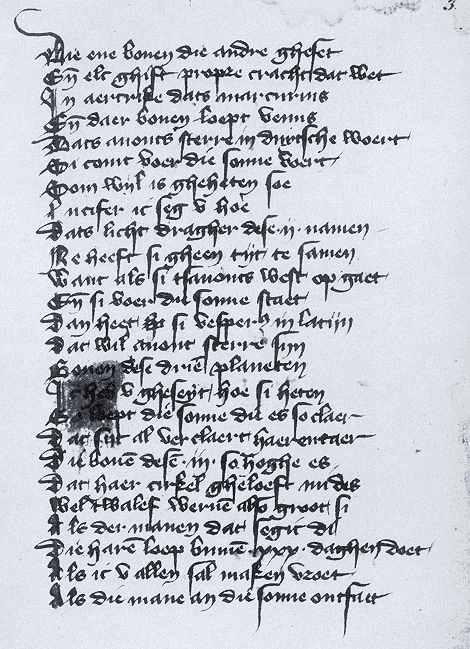 3.
Die ene bouen die andre gheset
Eñ elc ghift propre cracht dat wet
In aertrike dats marcurius
Eñ daer bouen loept venus
Dats auonts sterre in duutsche woert
Si comt voer die sonne voert
Som wijl is gheheten soe
Lucifer ic seg v hoe
Dats licht dragher dese .ij. namen
Ne heeft si gheen tijt te samen
Want als si tsauonts west op gaet
Eñ si voer die sonne staet
Dan heet si vesper in latijn
Dat wil auont sterre sijn
Bouen dese driē planeten
Ic heb v gheseyt hoe si heten
So loept die sonne die es so claer
Dat si al verclaert haer entaer
Die bouē desē .iij. so hoghe es
Dat haer cirkel gheloeft mi des
Wel twalef weruē also groot si
Als der manen dat segic di
Die harē loep binnē .xxx. daghen doet
Als ic v allen sal maken vroet
Als die mane an die sonne ontfaet